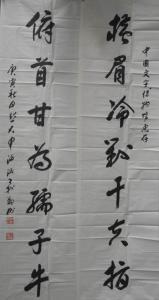 中国文字博物馆惠存
橫眉冷對千夫指
俯首甘為孺子牛
庚寅秋